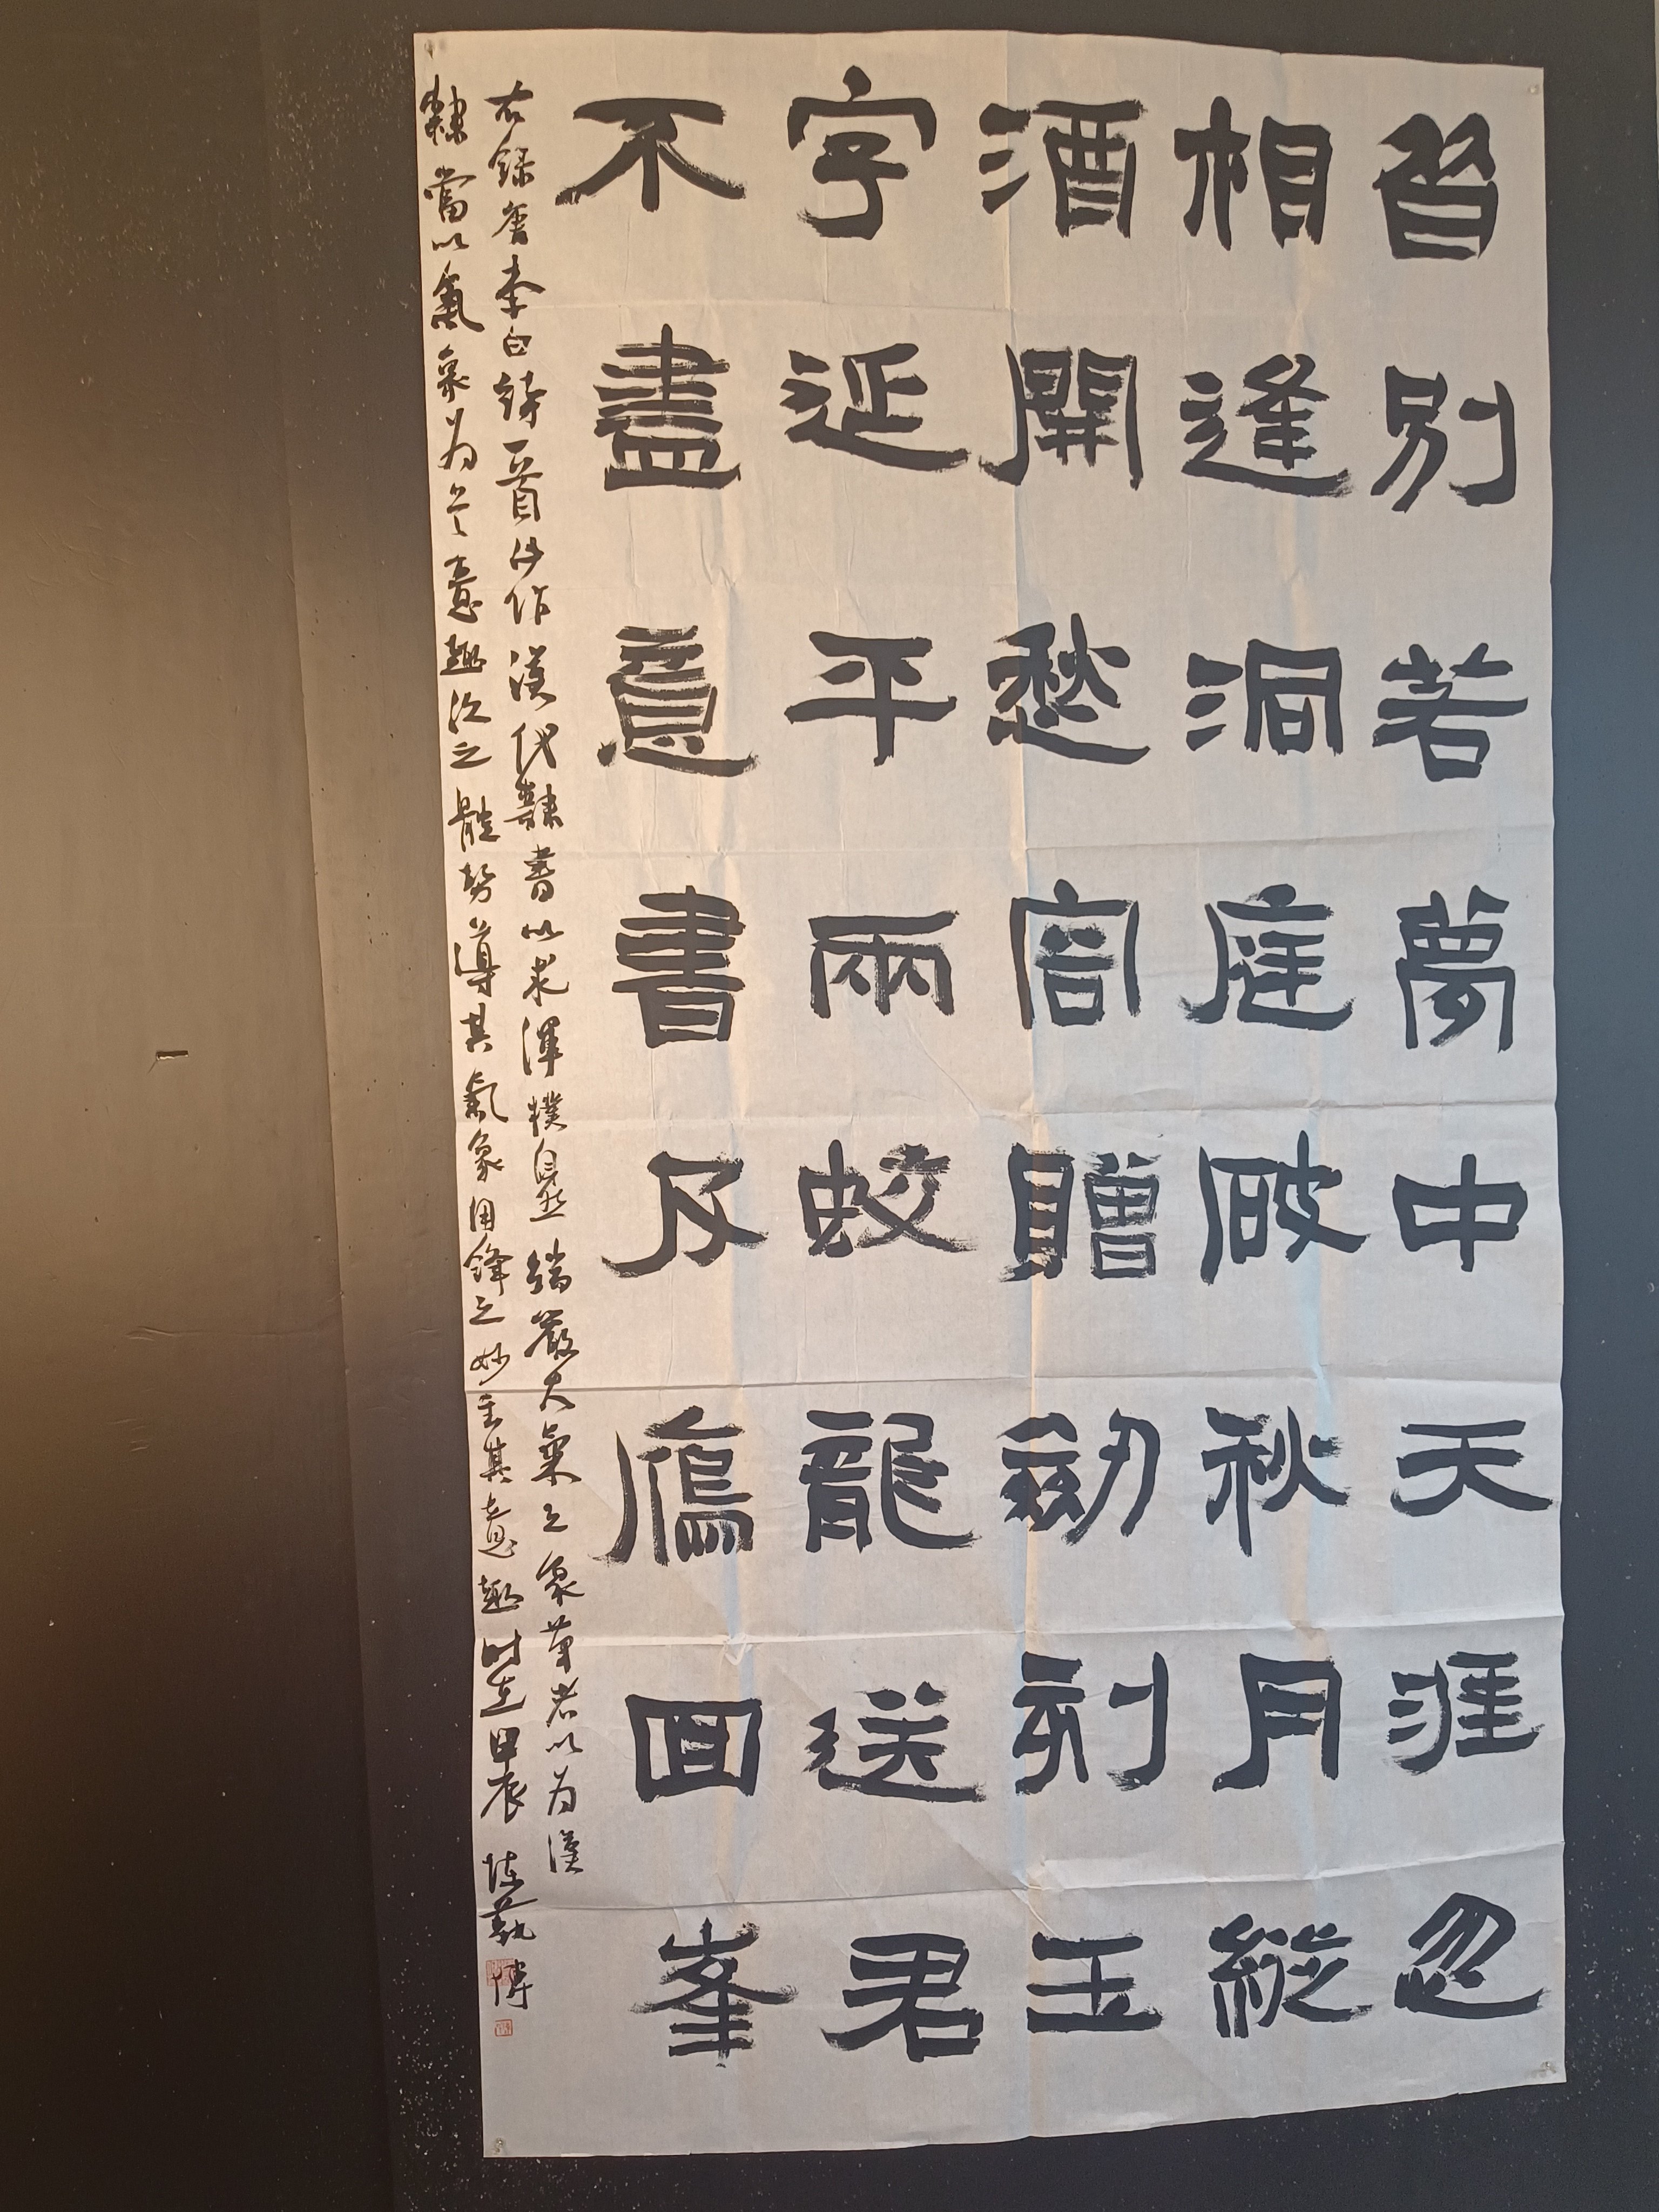 昔別若夢中天涯忽
相逢洞庭破秋月縱
酒開愁容贈劒刻玉
字延平兩蛟龍送君
不盡意書及鴈回峯
右錄唐李白詩一首仿作漢代隸書以求渾樸自然端嚴大氣之象筆者以為漢
隸當以氣象为先意趣次之體勢導其氣象用鋒之妙主其意趣时在甲辰陈執博